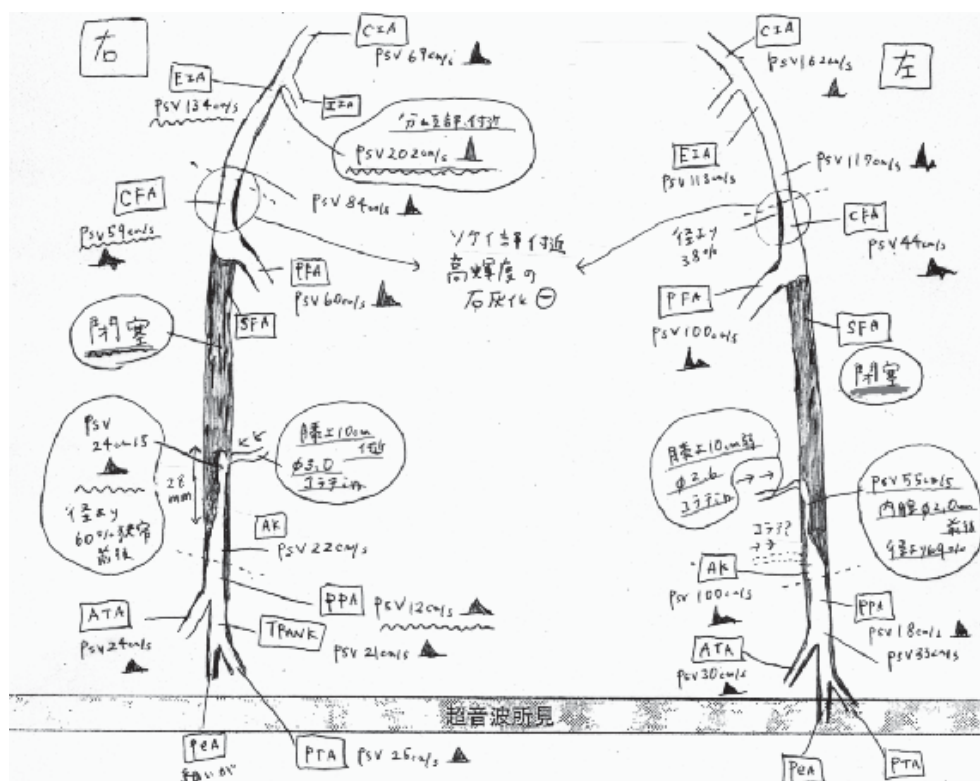 右
CIA
PSV 69cm/s
EIA
PSV 134cm/s
IIA
分岐部付近
PSV 202cm/s
CFA
PSV 84cm/s
PSV 59cm/s
PFA
PSV 60cm/s
SFA
閉塞
PSV
24cm/s
径より
60%狭窄
前後
28
mm
膝上10cm
付近
φ3.0
コラテ
AK
PSV 22cm/s
PPA
PSV 12cm/s
ATA
PSV 24cm/s
TRANK
PSV 21cm/s
PeA
細いが
PTA
PSV 26cm/s
ソケイ部付近
高輝度の
石灰化 ⊖
左
CIA
PSV 162cm/s
EIA
PSV 113cm/s
PSV 117cm/s
CFA
PSV 44cm/s
径より
38%
PFA
PSV 100cm/s
SFA
閉塞
膝上10cm弱
φ2.6
コラテ
PSV 55cm/s
内腔φ2.0mm
前後
径より69%
コラテ?
AK
PSV 100cm/s
PPA
PSV 18cm/s
PSV 33cm/s
ATA
PSV 30cm/s
超音波所見
PeA
PTA